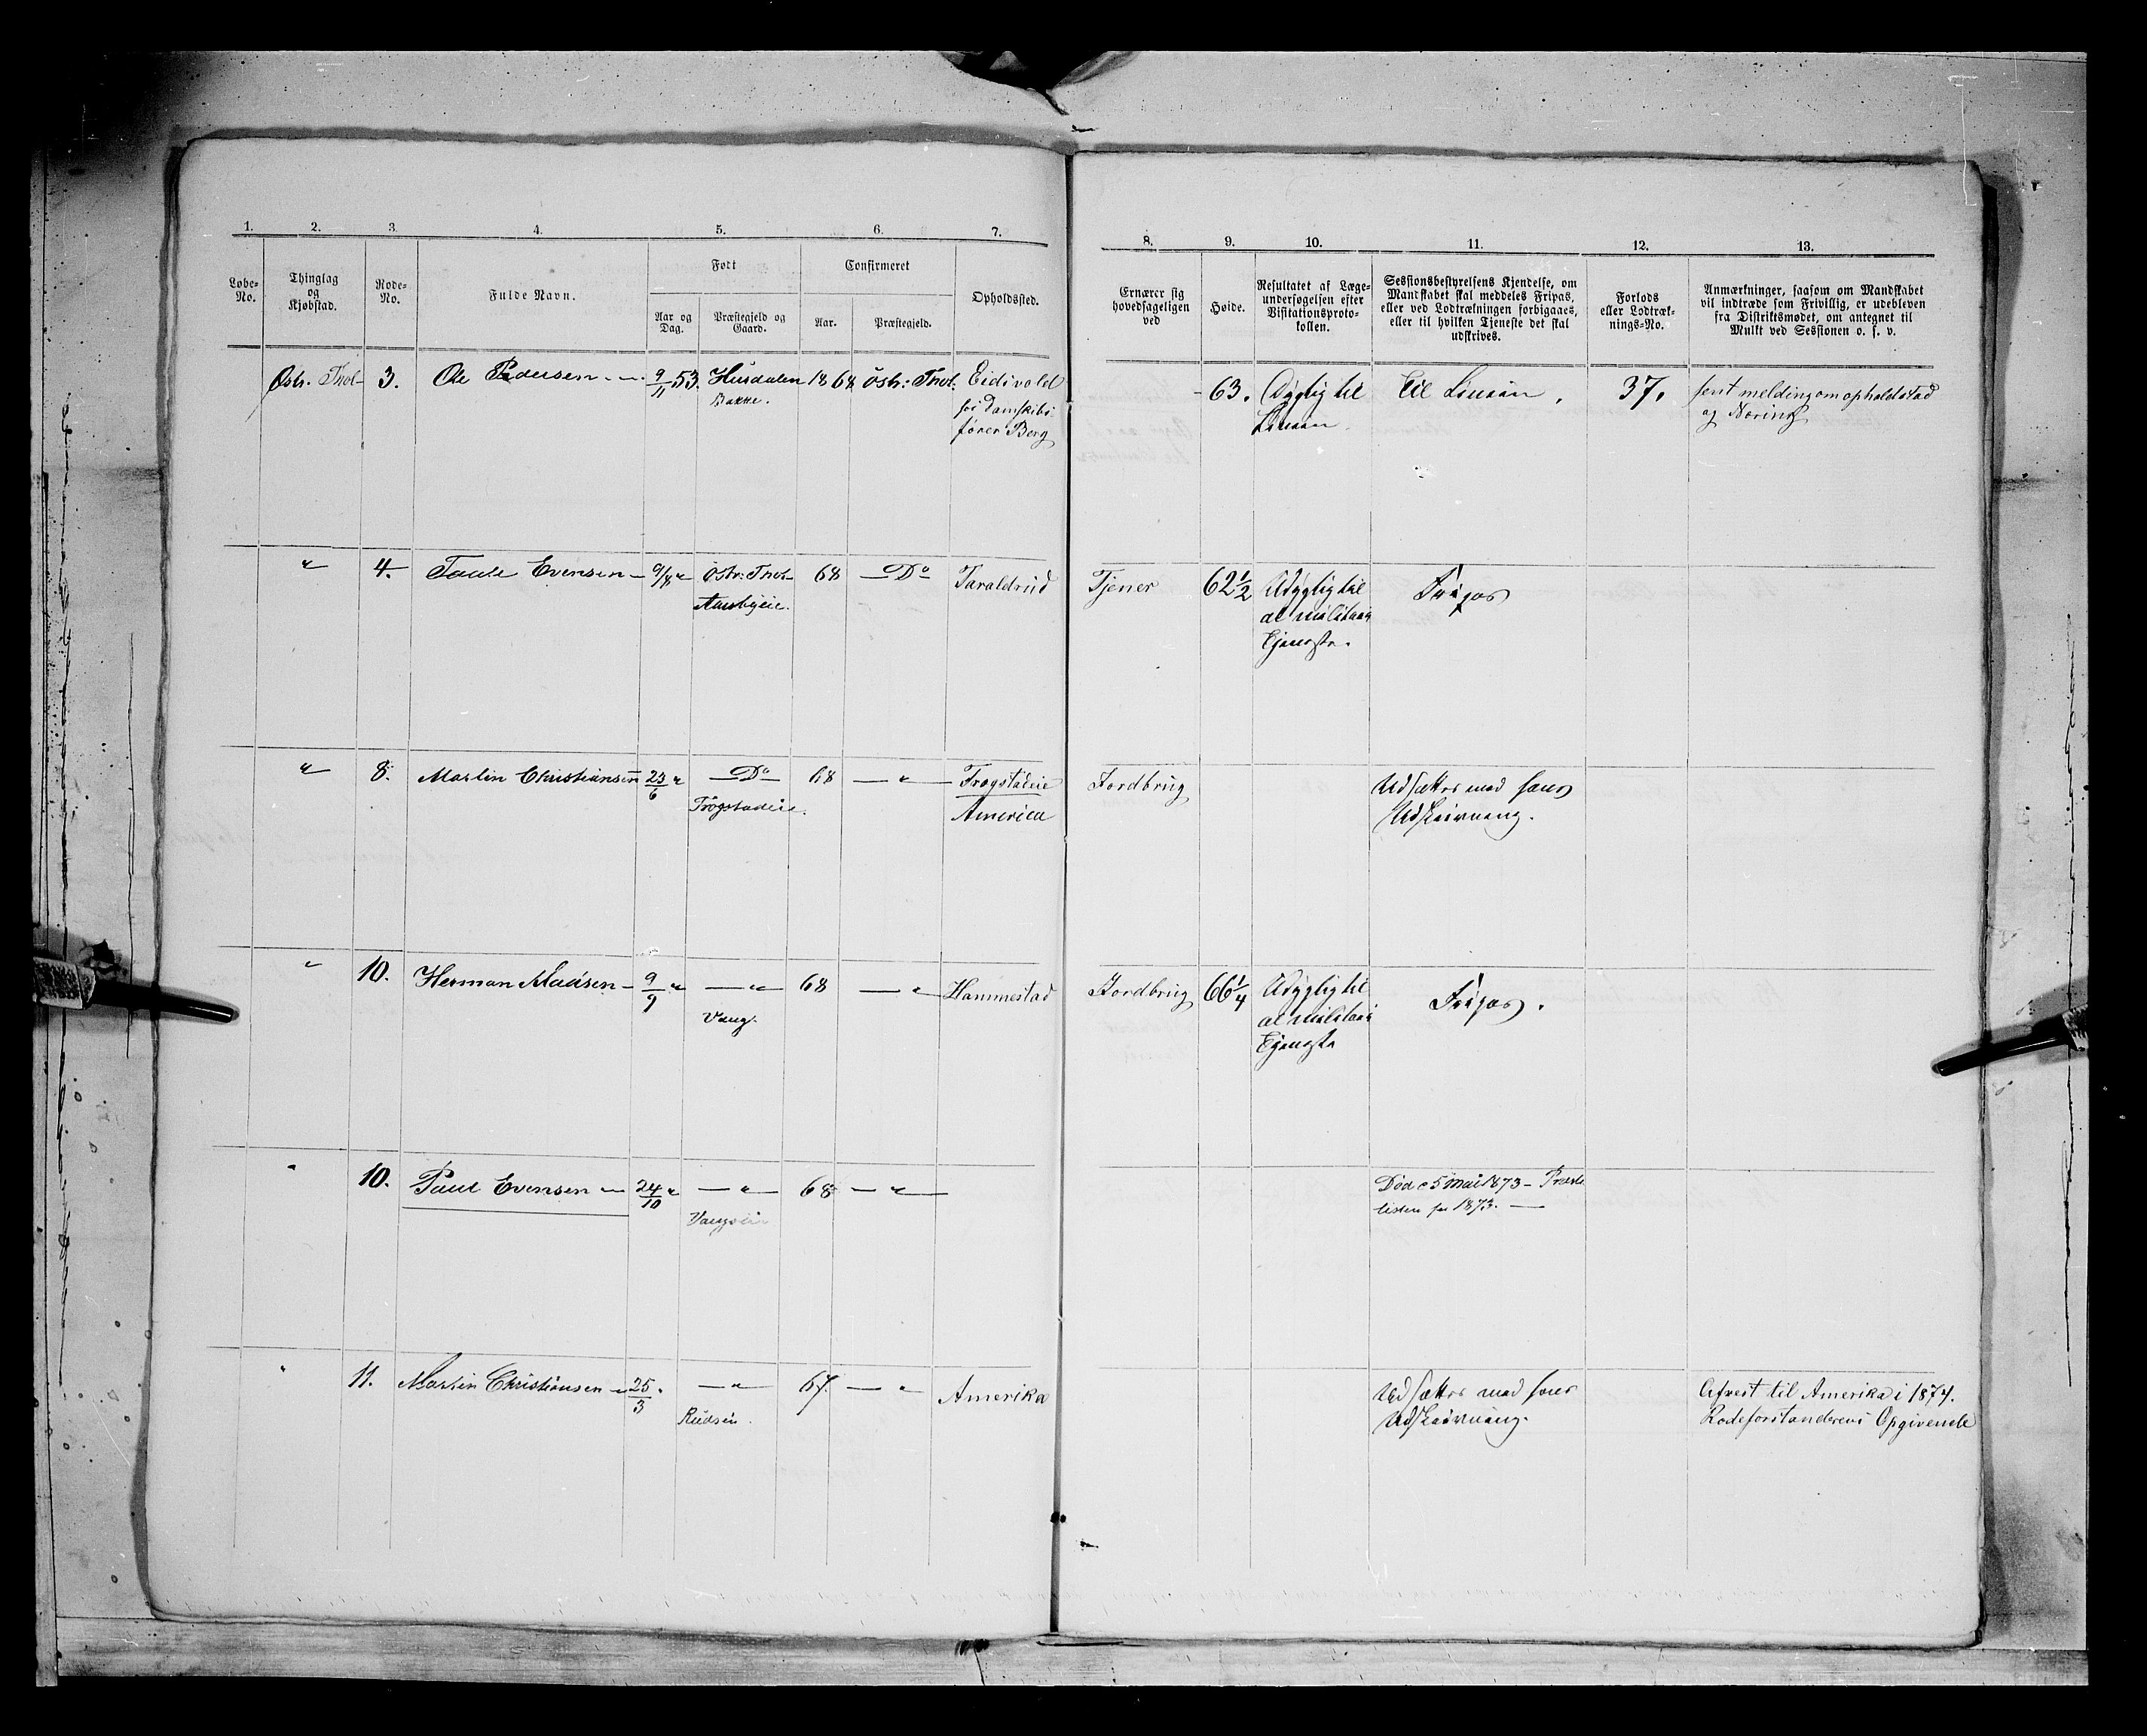 1. 2. 3. 4. 5. 6. 7.
Løbe-No.
Thinglag og Kjøbstad.
Rode-No.
Fulde Navn.
Født
Aar og Dag.
Præstegjeld og Gaard.
Confirmeret
Aar.
Præstegjeld.
Opholdssted.
8. 9. 10. 11. 12. 13.
Ernærer sig
hovedsageligen
ved
Høide.
Resultatet af Læge-
undersøgelsen efter
Visitationsproto-
kollen.
Sessionsbestyrelsens Kjendelse, om
Mandskabet skal meddeles Fripas,
eller ved Lodtrækningen forbigaaes,
eller til hvilken Tjeneste det skal
udskrives.
Forlods
eller Lodtræk-
nings-No.
Anmærkninger, saasom om Mandskabet
vil indtræde som Frivillig, er udebleven
fra Distriktsmødet, om antegnet til
Mulkt ved Sessionen o. s. v.
Østr. Thot- 3. Ole Pedersen 9/11 53. Husdalen 1868 Østr: Thot. Eidsvold
Bakke.
fører Berg
63. Dygtig til
Linien.
til Linien. 37. sent melding om opholdsstad
og Næring
" 4. Paule Evensen 9/8 " Østr: Thot 68 Do Taraldrud
Tjener 62 1/2 Udygtig til
al militair
Tjeneste.
Fripas
" 8. Martin Christiansen 23/6 " Do 68 " Frogstadeie
Frogstadeie. America
Jordbrug
Udsættes med hans
Udskrivning.
" 10. Herman Madsen 9/9 " " 68 " Hammestad
Vang.
Jordbrug 66 1/4 Udygtig til
al militair
Tjeneste
Fripas.
" 10. Paul Evensen 24/10 " " 68 "
Vangseie
Død 5 Mai 1873 - Præste
listen for 1873.
" 11. Martin Christiansen 25/3 " " 67. " Amerika
Udsættes med hans
Udskrivning.
Afrest til Amerika i 1874.
Rodeforstanderens Opgivende